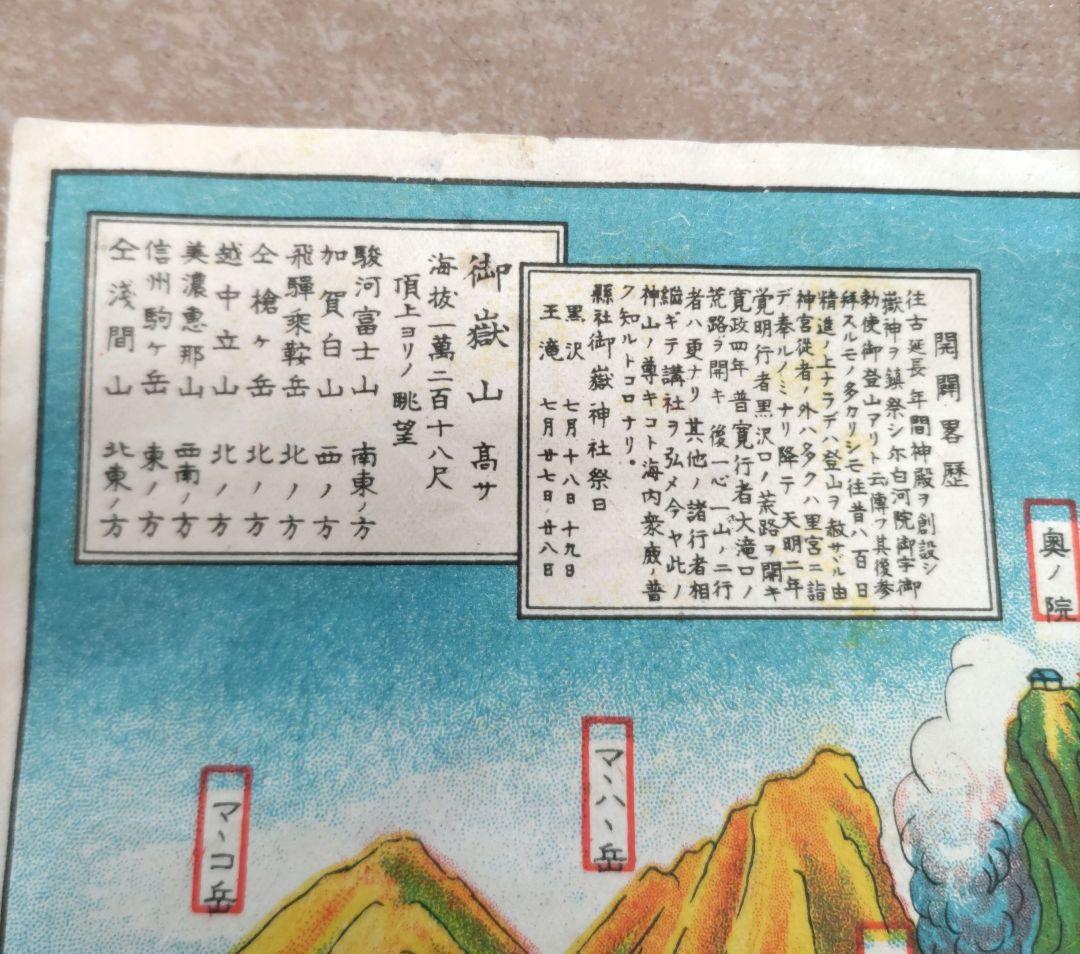 開闢畧歴
往古延長年間神殿ヲ創設シ
嶽神ヲ鎮祭シ尓白河院御宇御
勅使御登山アリト云傳フ其後参
拜スルモノ多カリシモ往昔ハ百日
精進ノ上ナラデハ登山ヲ赦サヾル由
神宮從者ノ外ハ多クハ里宮ニ詣
デ奉ルノミナリ降テ天明二年
覚明行者黒沢口ノ荒路ヲ開キ
寛政四年普寛行者大滝口ノ
荒路ヲ開キ後一心一山ノ二行
者ハ更ナリ其他ノ諸行者相
継ギテ講社ヲ弘メ今ヤ此ノ
神山ノ尊キコト海内衆庶ノ普
ク知ルトコロナリ
縣社御嶽神社祭日
黒沢 七月十八日十九日
王滝 七月廿七日廿八日
御嶽山高サ
海抜一萬二百十八尺
頂上ヨリノ眺望
駿河富士山 南東ノ方
加賀白山 西ノ方
飛驒乘鞍岳 北ノ方
仝槍ヶ岳 北ノ方
越中立山 北ノ方
美濃恵那山 西南ノ方
信州駒ヶ岳 東ノ方
仝浅間山 北東ノ方
奥ノ院
マヽハヽ岳
マヽコ岳